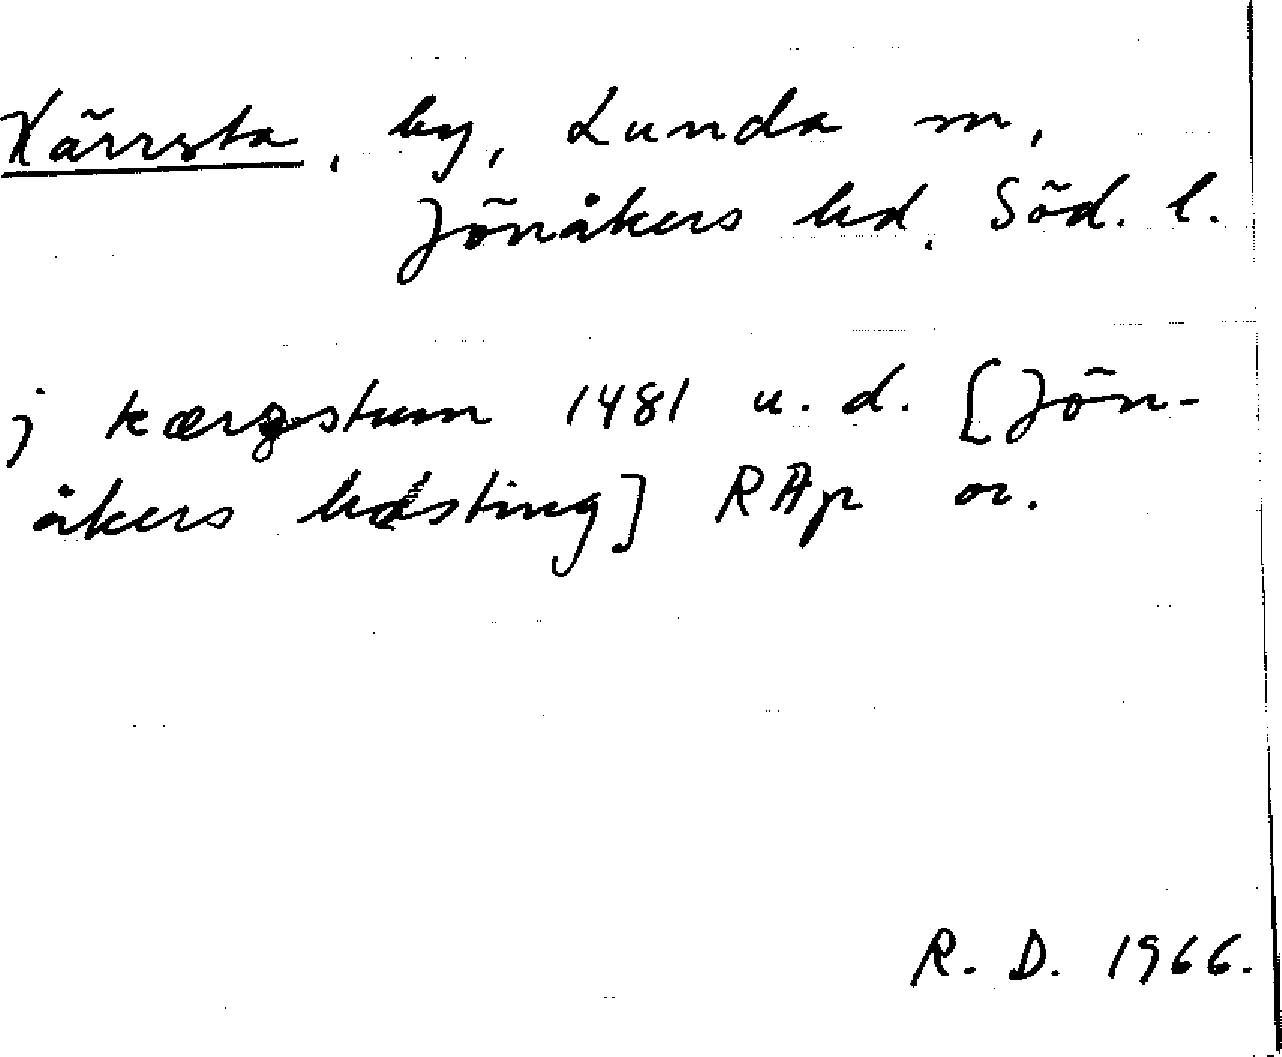 Kärrsta, by, Lunda sn,
Jönåkers hd, Söd. l.
j kærgstum 1481 u. d. [Jön-
åkers hdsting] RAp or.
R. D. 1966.